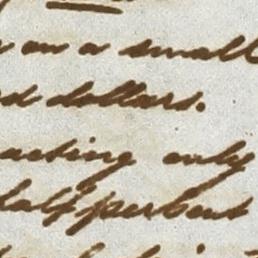 on a small
dollars.
acting only
half per Cent